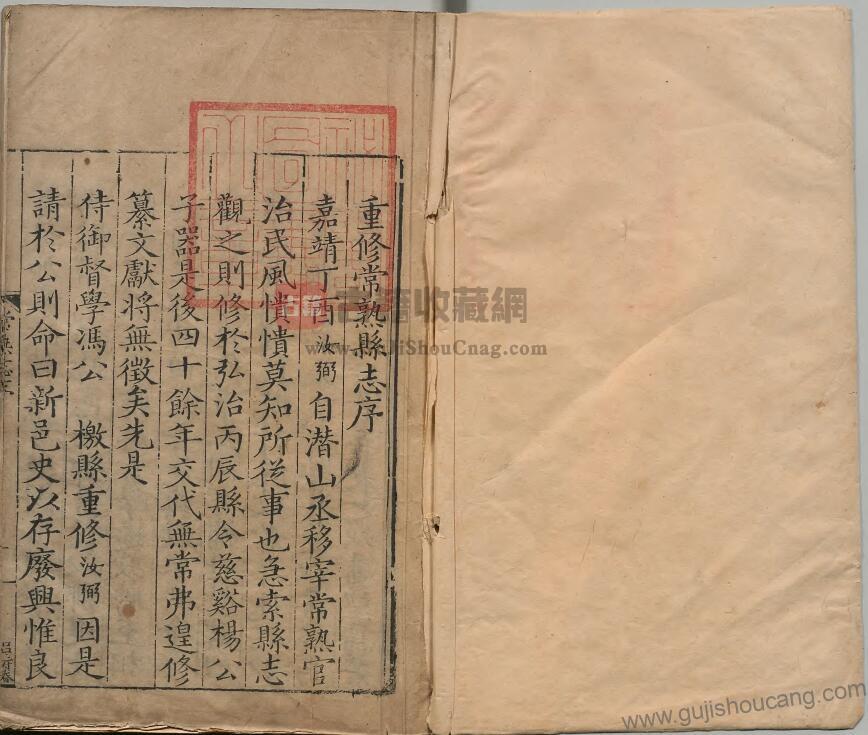 重修常熟縣志序
嘉靖丁酉汝弼自潛山丞移宰常熟官
治民風憒憒莫知所從事也急索縣志
觀之則修於弘治丙辰縣令慈谿楊公
子器是後四十餘年交代無常弗遑修
纂文獻將無徵矣先是
侍御督學馮公 檄縣重修汝弼因是
請於公則命曰新邑史以存廢興惟良
古籍收藏網
www.GuJiShouCnag.com
www.gujishoucang.com